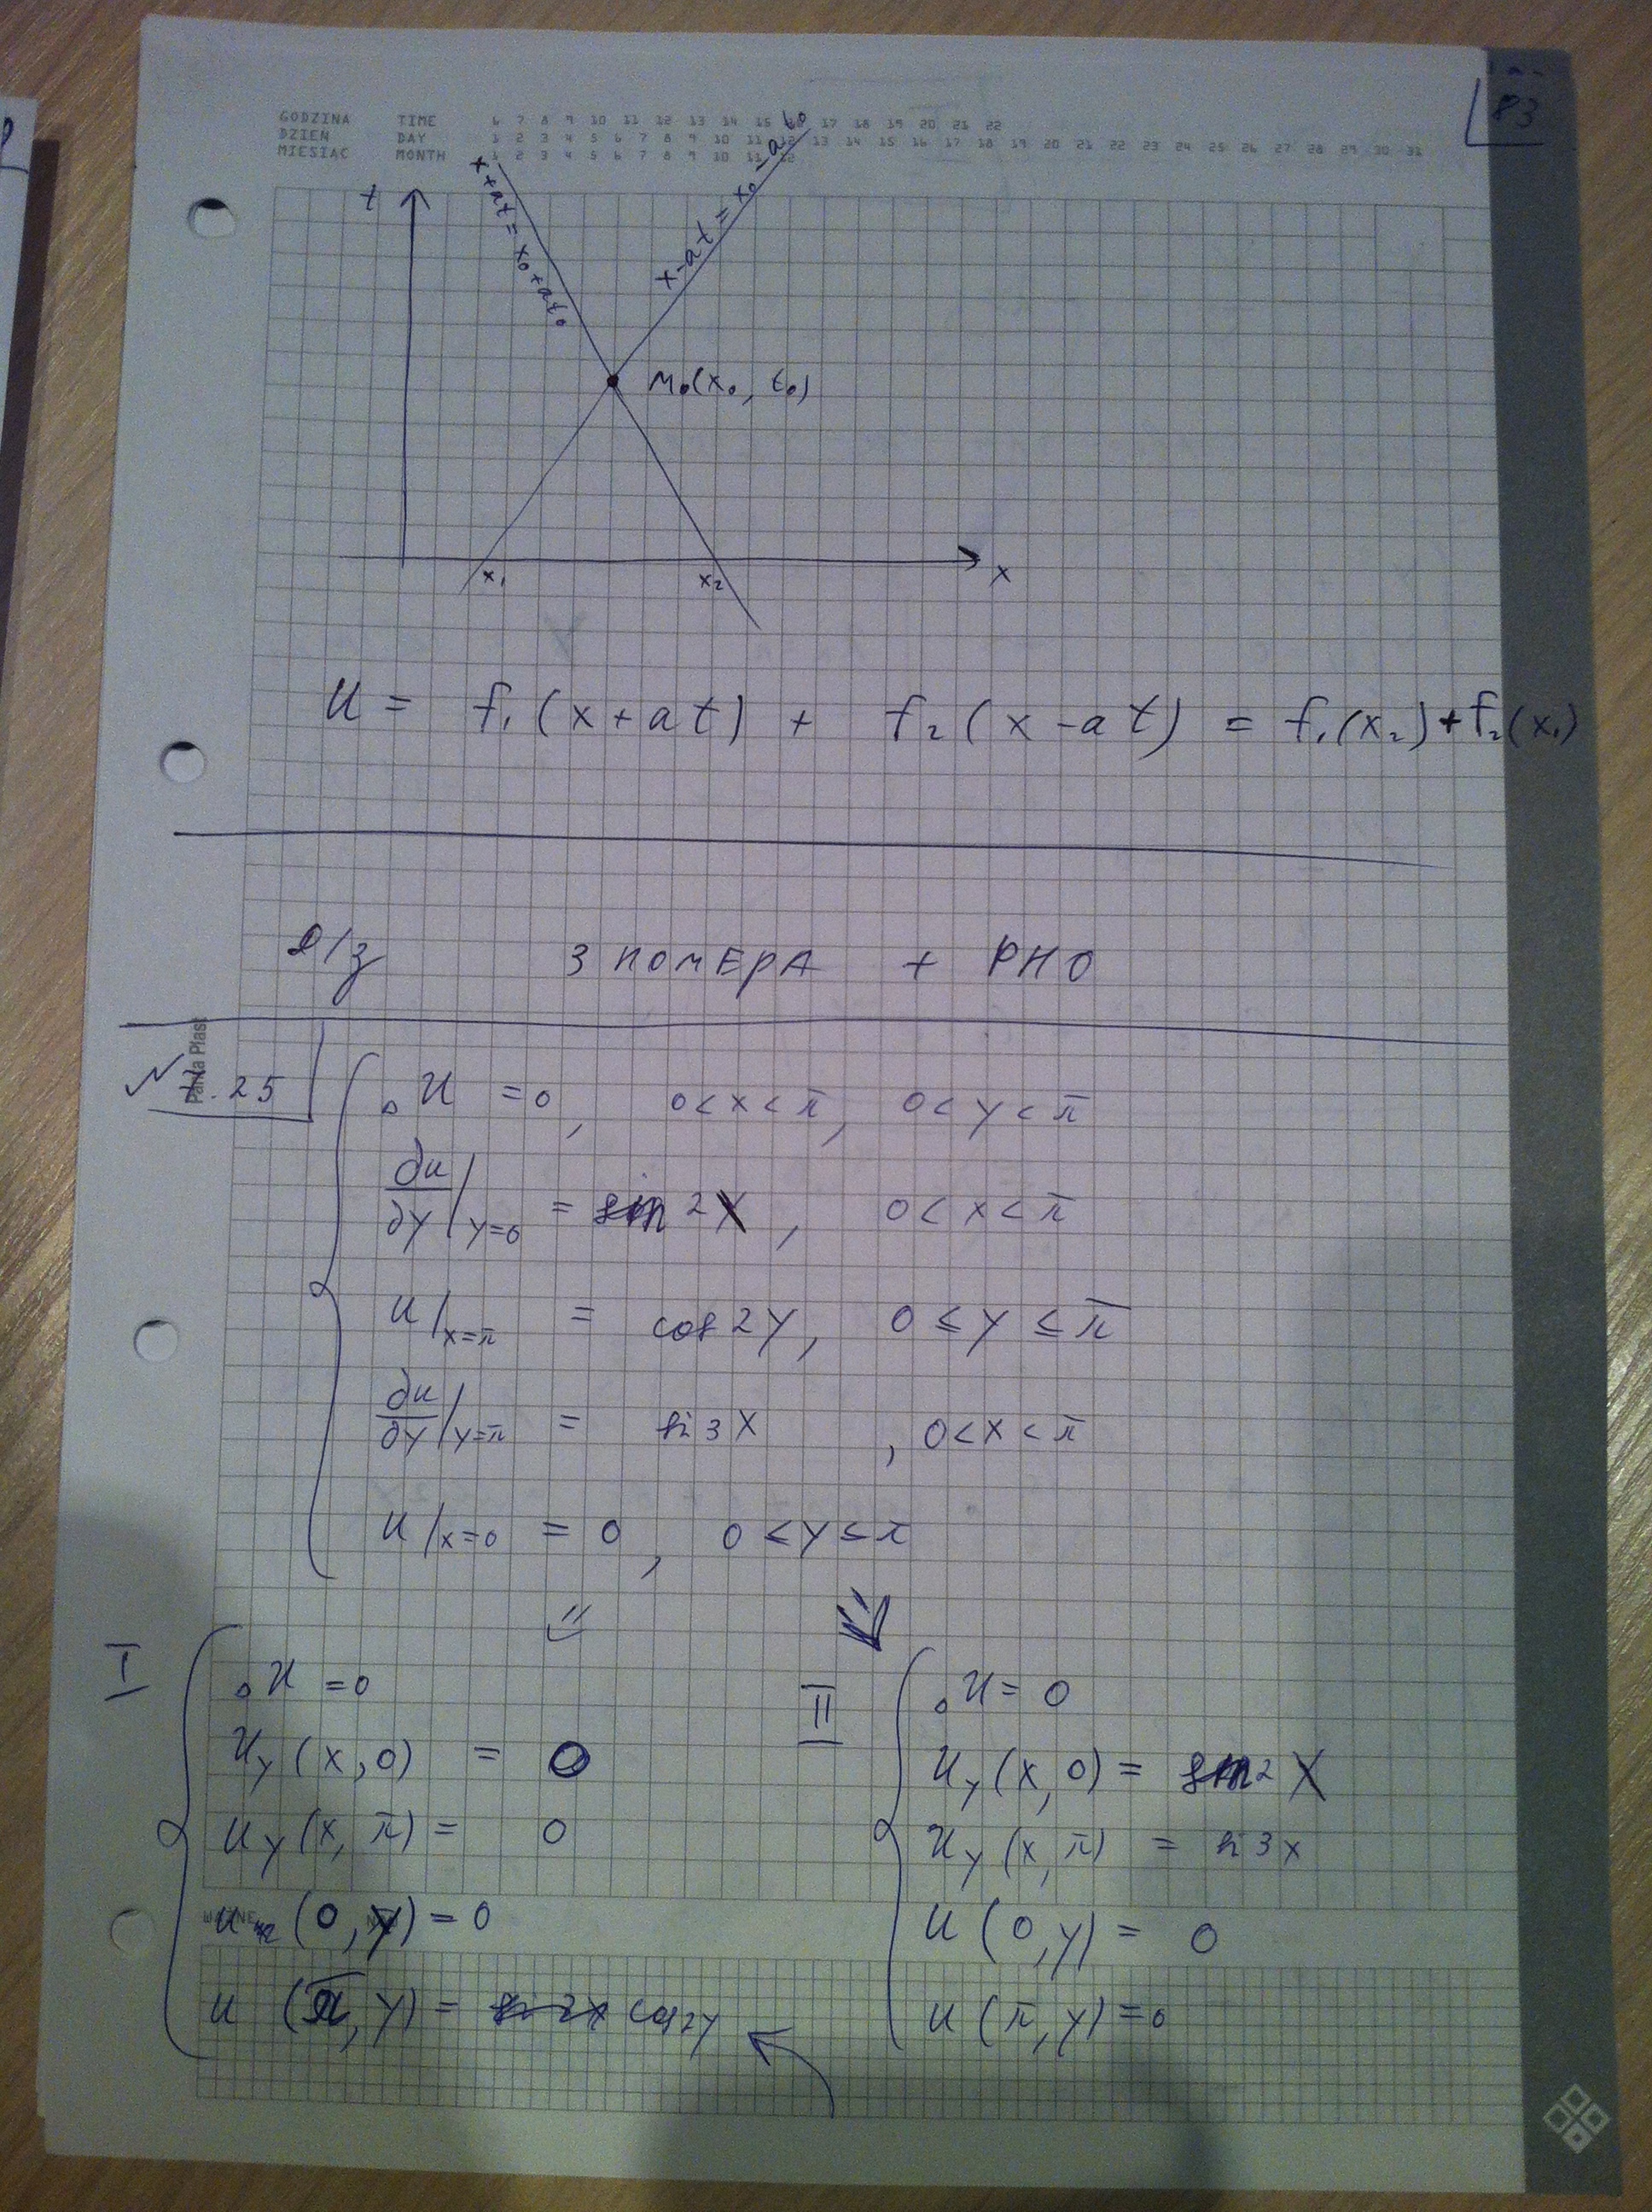 83
GODZINA TIME 6 7 8 9 10 11 12 13 14 15 16 17 18 19 20 21 22
DZIEŃ DAY 1 2 3 4 5 6 7 8 9 10 11 12 13 14 15 16 17 18 19 20 21 22 23 24 25 26 27 28 29 30 31
MIESIĄC MONTH 1 2 3 4 5 6 7 8 9 10 11 12
t
x+at = x₀+at₀
x-at = x₀-at₀
M₀(x₀, t₀)
x₁ x₂ x
U = f₁(x+at) + f₂(x-at) = f₁(x₂)+f₂(x₁)
Д/з 3 НОМЕРА + РНО
Panta Plast
№ 7.25
△U = 0, 0<x<π, 0<y<π
∂u/∂y|y=0 = sin 2x, 0<x<π
u|x=π = cos 2y, 0≤y≤π
∂u/∂y|y=π = si 3x, 0<x<π
u|x=0 = 0, 0≤y≤π
I
△U = 0
U_y(x,0) = 0
U_y(x,π) = 0
u(0,y) = 0
u(π,y) = cos 2y
II
△U = 0
U_y(x,0) = sin 2x
U_y(x,π) = si 3x
U(0,y) = 0
U(π,y) = 0